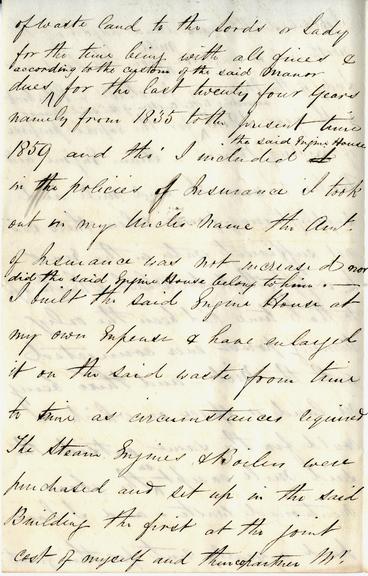 of waste land to the Lords or Lady
for the time being with all fines &
according to the custom of the said Manor
dues, for the last twenty four years
namely from 1835 to the present time
the said Engine House
1859 and tho' I included it
in the policies of Insurance I took
out in my Uncles Name the Amt.
of Insurance was not increased nor
did the said Engine House belong to him. —
I built the said Engine House at
my own Expense & have enlarged
it on the said waste from time
to time as circumstances required
The Steam Engines & Boilers were
purchased and set up in the said
Building the first at the joint
cost of myself and then partner Mr.